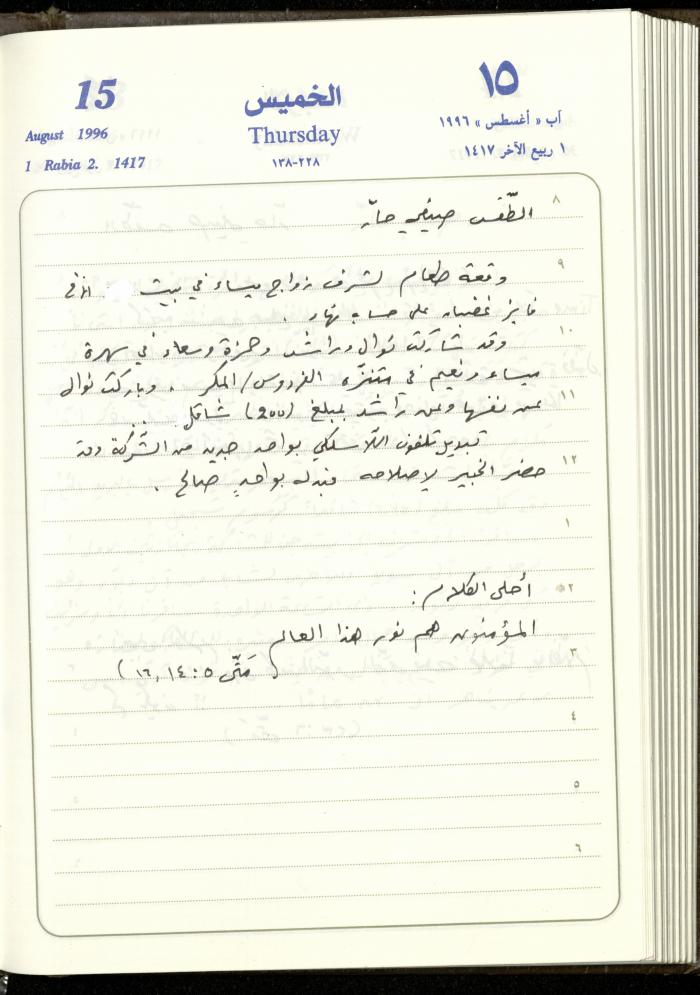 15
الخميس
١٥
August 1996
Thursday
آب « أغسطس » ١٩٩٦
1 Rabia 2. 1417
١٣٨-٢٢٨
١ ربيع الآخر ١٤١٧
٨
الطّقس صيفي حارّ
٩
وقعة طعام لشرف زواج ميساء في بيت الأخ
فايز غضبان على حساب نهاد .
١٠
وقد شاركت نوال وراشد وحمزة وسعاد في سهرة
ميساء ونعيم في متنزّه الفردوس/المكر . وباركت نوال
١١
عن نفسها وعن راشد بمبلغ (٢٥٥) شاقل .
تبديل تلفون اللاسلكي بواحد جديد من الشّركة وقد
١٢
حضر الخبير لإصلاحه فبدله بواحدٍ صالح .
١
٢
أحلى الكلام :
المؤمنون هم نور هذا العالم
٣
( متّى ٥ : ١٤ , ١٦ )
٤
٥
٦